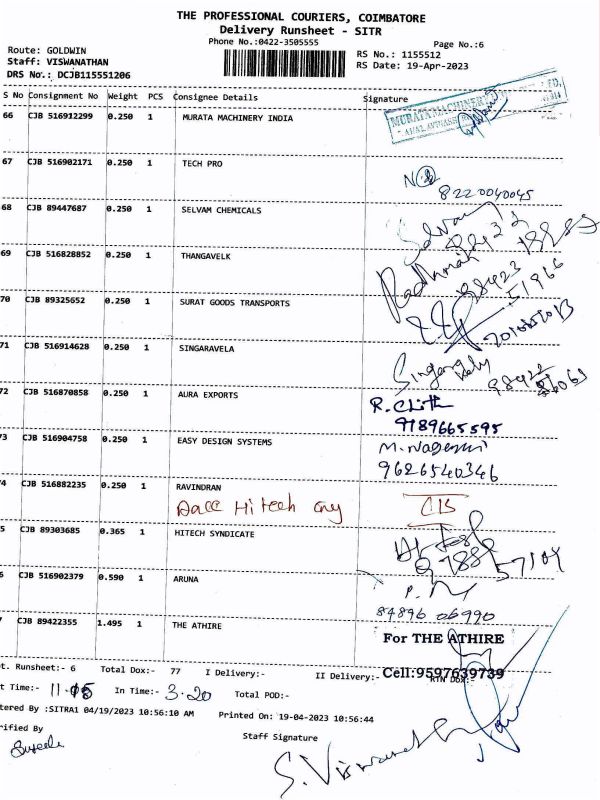 THE PROFESSIONAL COURIERS, COIMBATORE
Delivery Runsheet - SITR
Phone No.:0422-3505555
Page No.:6
Route: GOLDWIN
RS No.: 1155512
Staff: VISWANATHAN
RS Date: 19-Apr-2023
DRS No.: DCJB115551206
S No Consignment No Weight PCS Consignee Details Signature
66 CJB 516912299 0.250 1 MURATA MACHINERY INDIA
MURATA MACHINERY
67 CJB 516902171 0.250 1 TECH PRO
8220040045
68 CJB 89447687 0.250 1 SELVAM CHEMICALS
Selvam
69 CJB 516828852 0.250 1 THANGAVELK
98423
51966
70 CJB 89325652 0.250 1 SURAT GOODS TRANSPORTS
71 CJB 516914628 0.250 1 SINGARAVELA
72 CJB 516870858 0.250 1 AURA EXPORTS
9789665595
73 CJB 516904758 0.250 1 EASY DESIGN SYSTEMS
9626540346
74 CJB 516882235 0.250 1 RAVINDRAN
5 CJB 89303685 0.365 1 HITECH SYNDICATE
6 CJB 516902379 0.590 1 ARUNA
84896 06990
7 CJB 89422355 1.495 1 THE ATHIRE
For THE ATHIRE
Cell:9597639739
ot. Runsheet:- 6 Total Dox:- 77 I Delivery:- II Delivery:- RTN Dox:-
t Time:- 11.05 In Time:- 3.20 Total POD:-
tered By :SITRA1 04/19/2023 10:56:10 AM Printed On: 19-04-2023 10:56:44
rified By
Staff Signature
S. Viswanathan